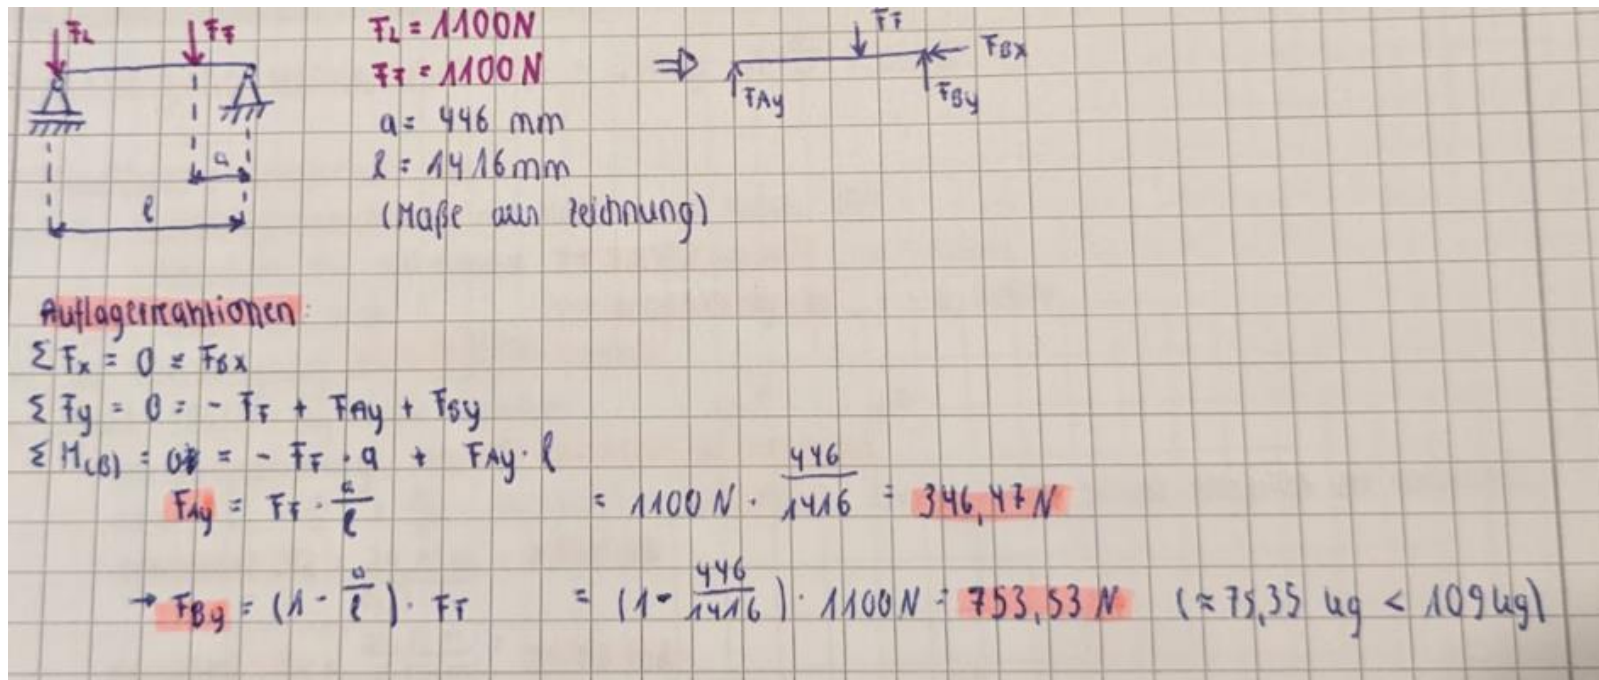 F_L F_F F_L = 1100N F_F
F_F = 1100N F_Bx
a = 446 mm F_Ay F_By
a l = 1416mm
l (Maße aus Zeichnung)
Auflagerreaktionen:
Σ F_x = 0 = F_Bx
Σ F_y = 0 = - F_F + F_Ay + F_By
Σ M_(B) = 0 = - F_F · a + F_Ay · l
F_Ay = F_F · a/l = 1100 N · 446/1416 = 346,47 N
→ F_By = (1 - a/l) · F_F = (1 - 446/1416) · 1100N = 753,53 N (≈ 75,35 kg < 109 kg)